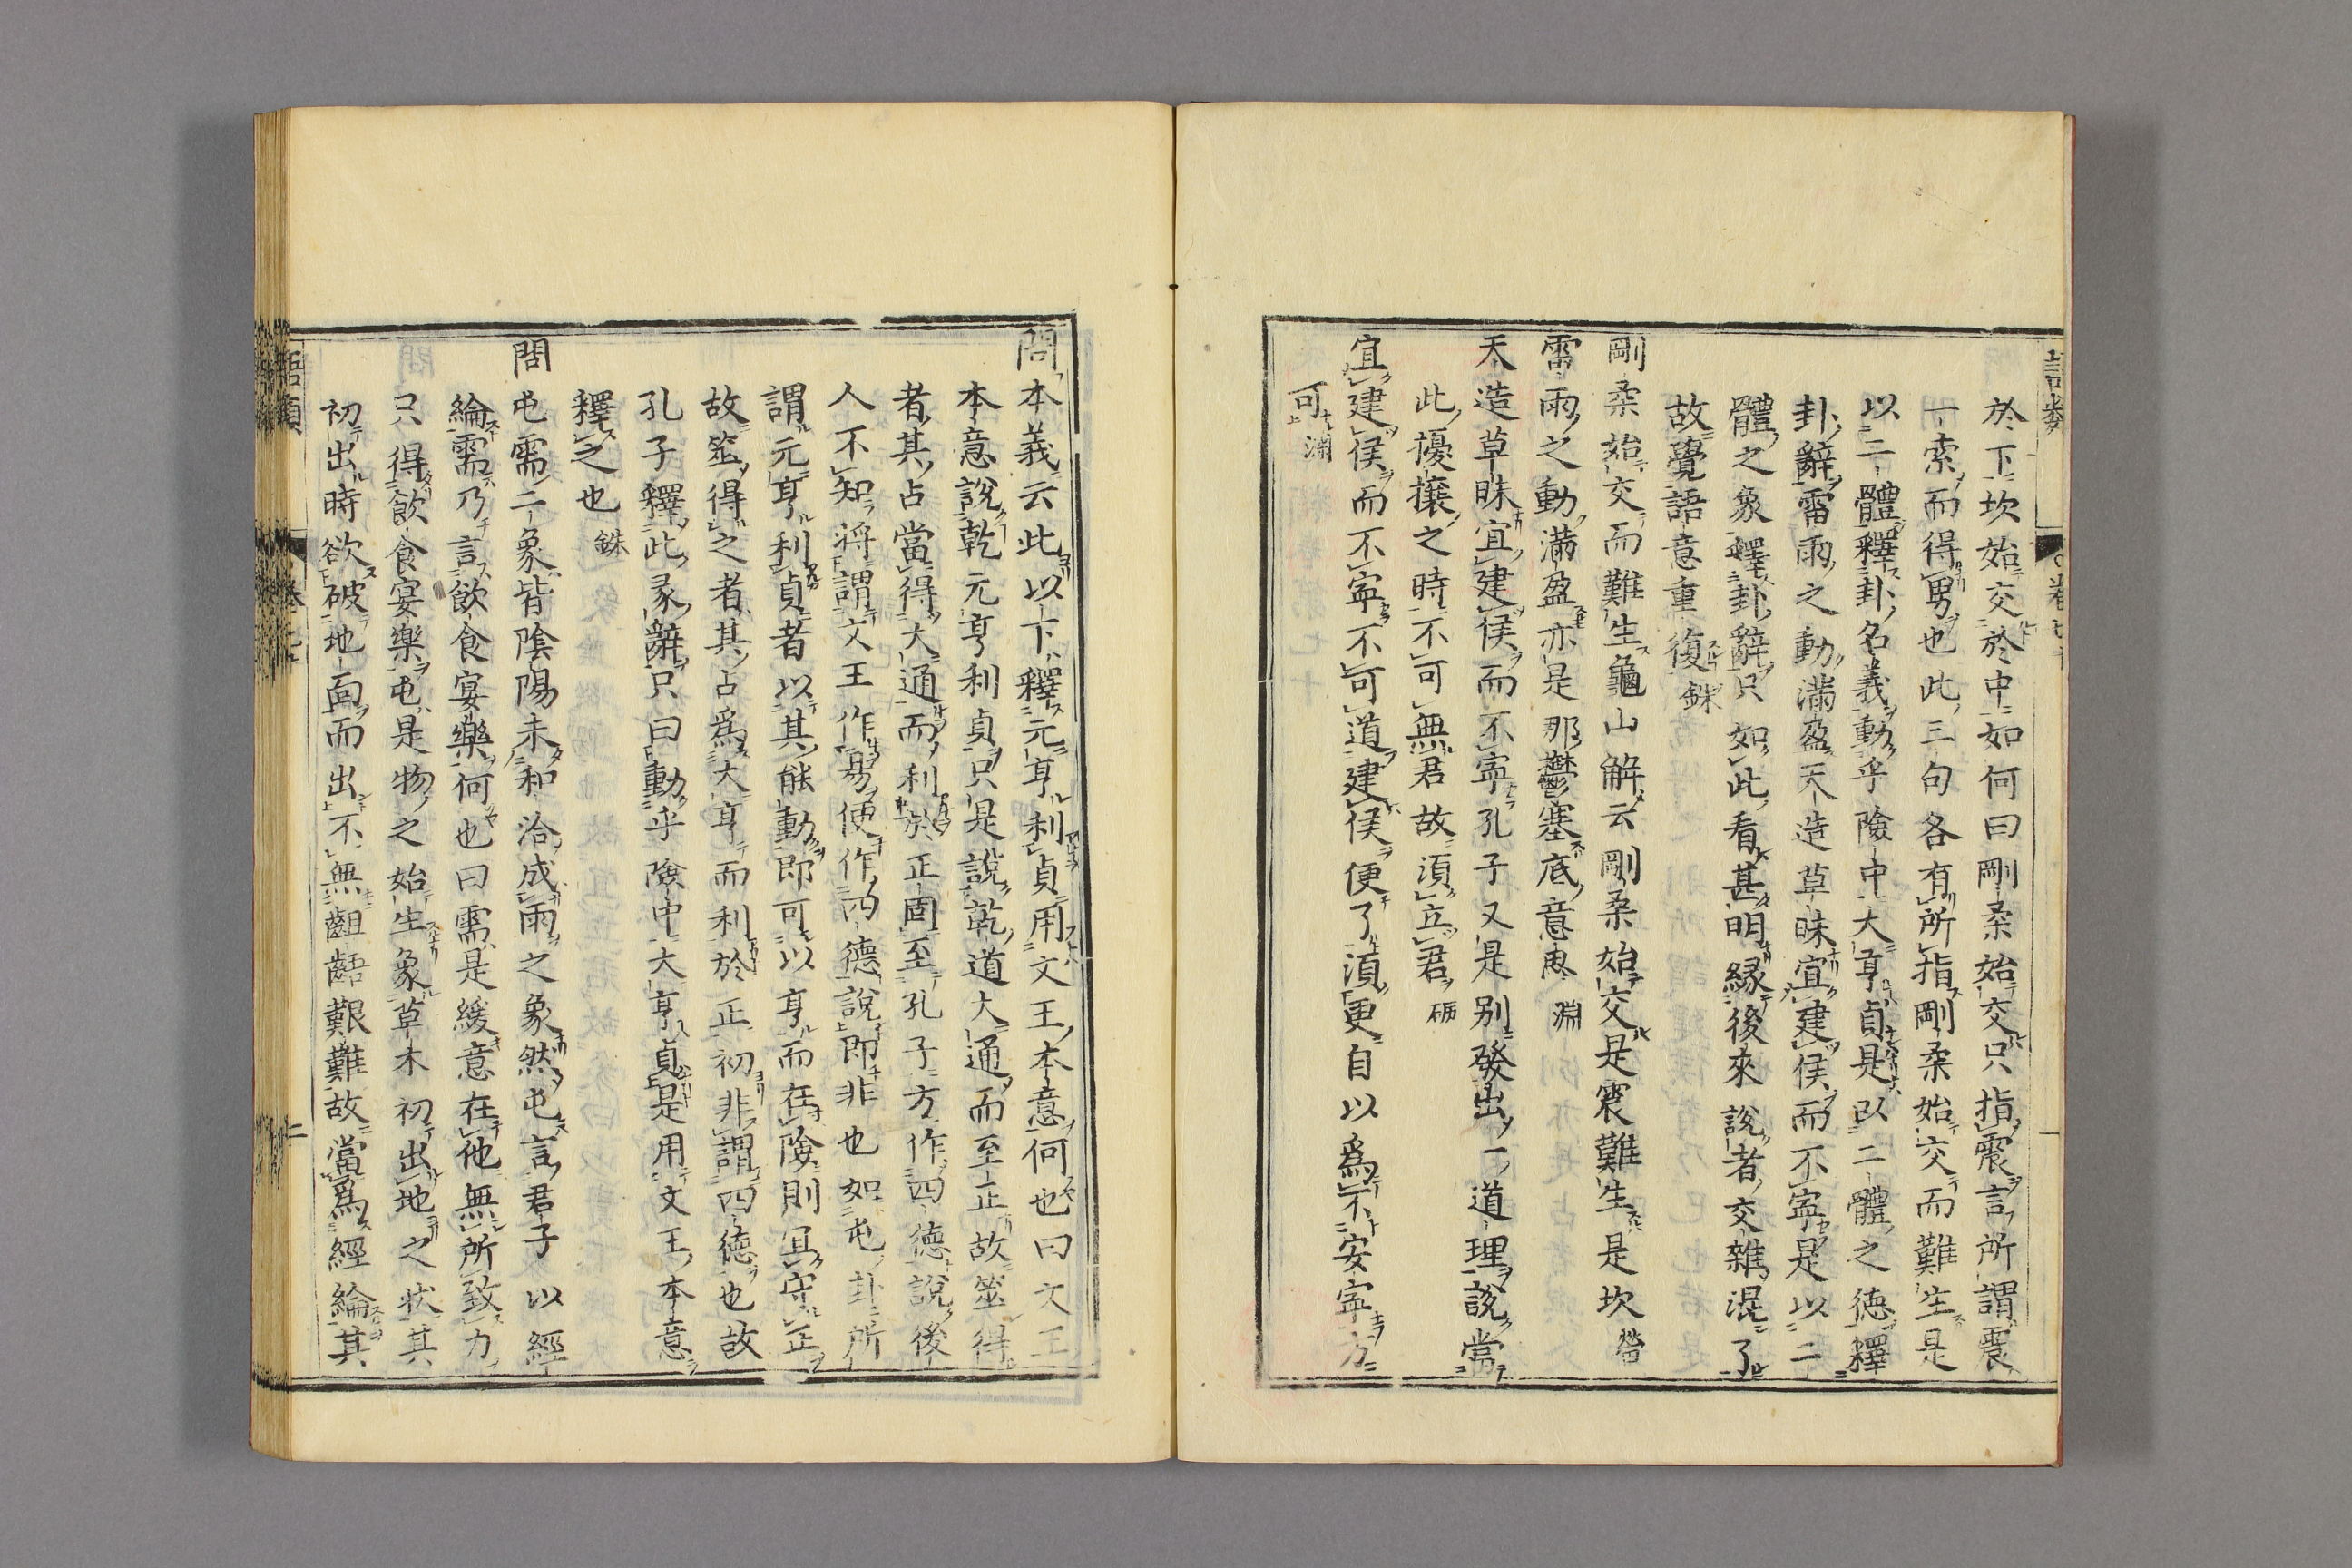 於下坎始交於中如何曰剛柔始交只指震言所謂震
一索而得男也此三句各有所指剛柔始交而難生是
以二體釋卦名義動乎險中大亨貞是以二體之德釋
卦辭雷雨之動滿盈天造草昧宜建侯而不寧是以二
體之象釋卦辭只如此看甚明緣後來說者交雜混了
故覺語意重復 銖
剛柔始交而難生龜山解云剛柔始交是震難生是坎 㽦
雷雨之動滿盈亦是那鬱塞底意思 淵
天造草昧宜建侯而不寧孔子又是別發出一道理說當
此擾攘之時不可無君故須立君 砺
宜建侯而不寧不可道建侯便了須更自以爲不安寧方
可 淵
問本義云此以下釋元亨利貞用文王本意何也曰文王
本意說乾元亨利貞只是說乾道大通而至正故筮得
者其占當得大通而利於正固至孔子方作四德說後
人不知將謂文王作易便作四德說即非也如屯卦所
謂元亨利貞者以其能動即可以亨而在險則宜守正
故筮得之者其占爲大亨而利於正初非謂四德也故
孔子釋此彖辭只曰動乎險中大亨貞是用文王本意
釋之也 銖
問屯需二象皆陰陽未和洽成雨之象然屯言君子以經
綸需乃言飲食宴樂何也曰需是緩意在他無所致力
只得飲食宴樂屯是物之始生象草木初出地之狀其
初出時欲破地面而出不無齟齬艱難故當爲經綸其